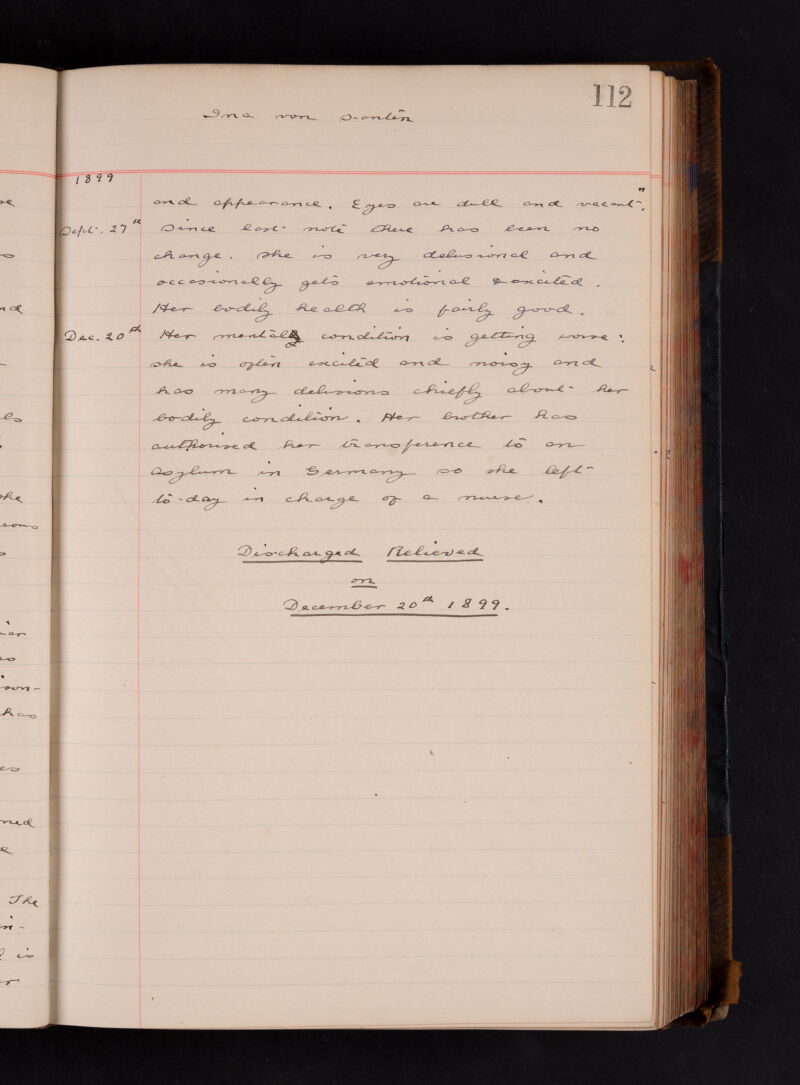 112
Ina von
1899
and appearance. Eyes are dull and vacant".
Sept. 27th Since last note there has been no
change. She is very delusional and
occasionally gets emotional & excited.
Her bodily health is fairly good.
Dec. 20th Her mental condition is getting worse:
she is often excited and noisy and
has many delusions chiefly about her
bodily condition. Her brother has
authorised her transference to an
asylum in Germany so she left
to-day in charge of a nurse.
Discharged Relieved
on
December 20th 1899.